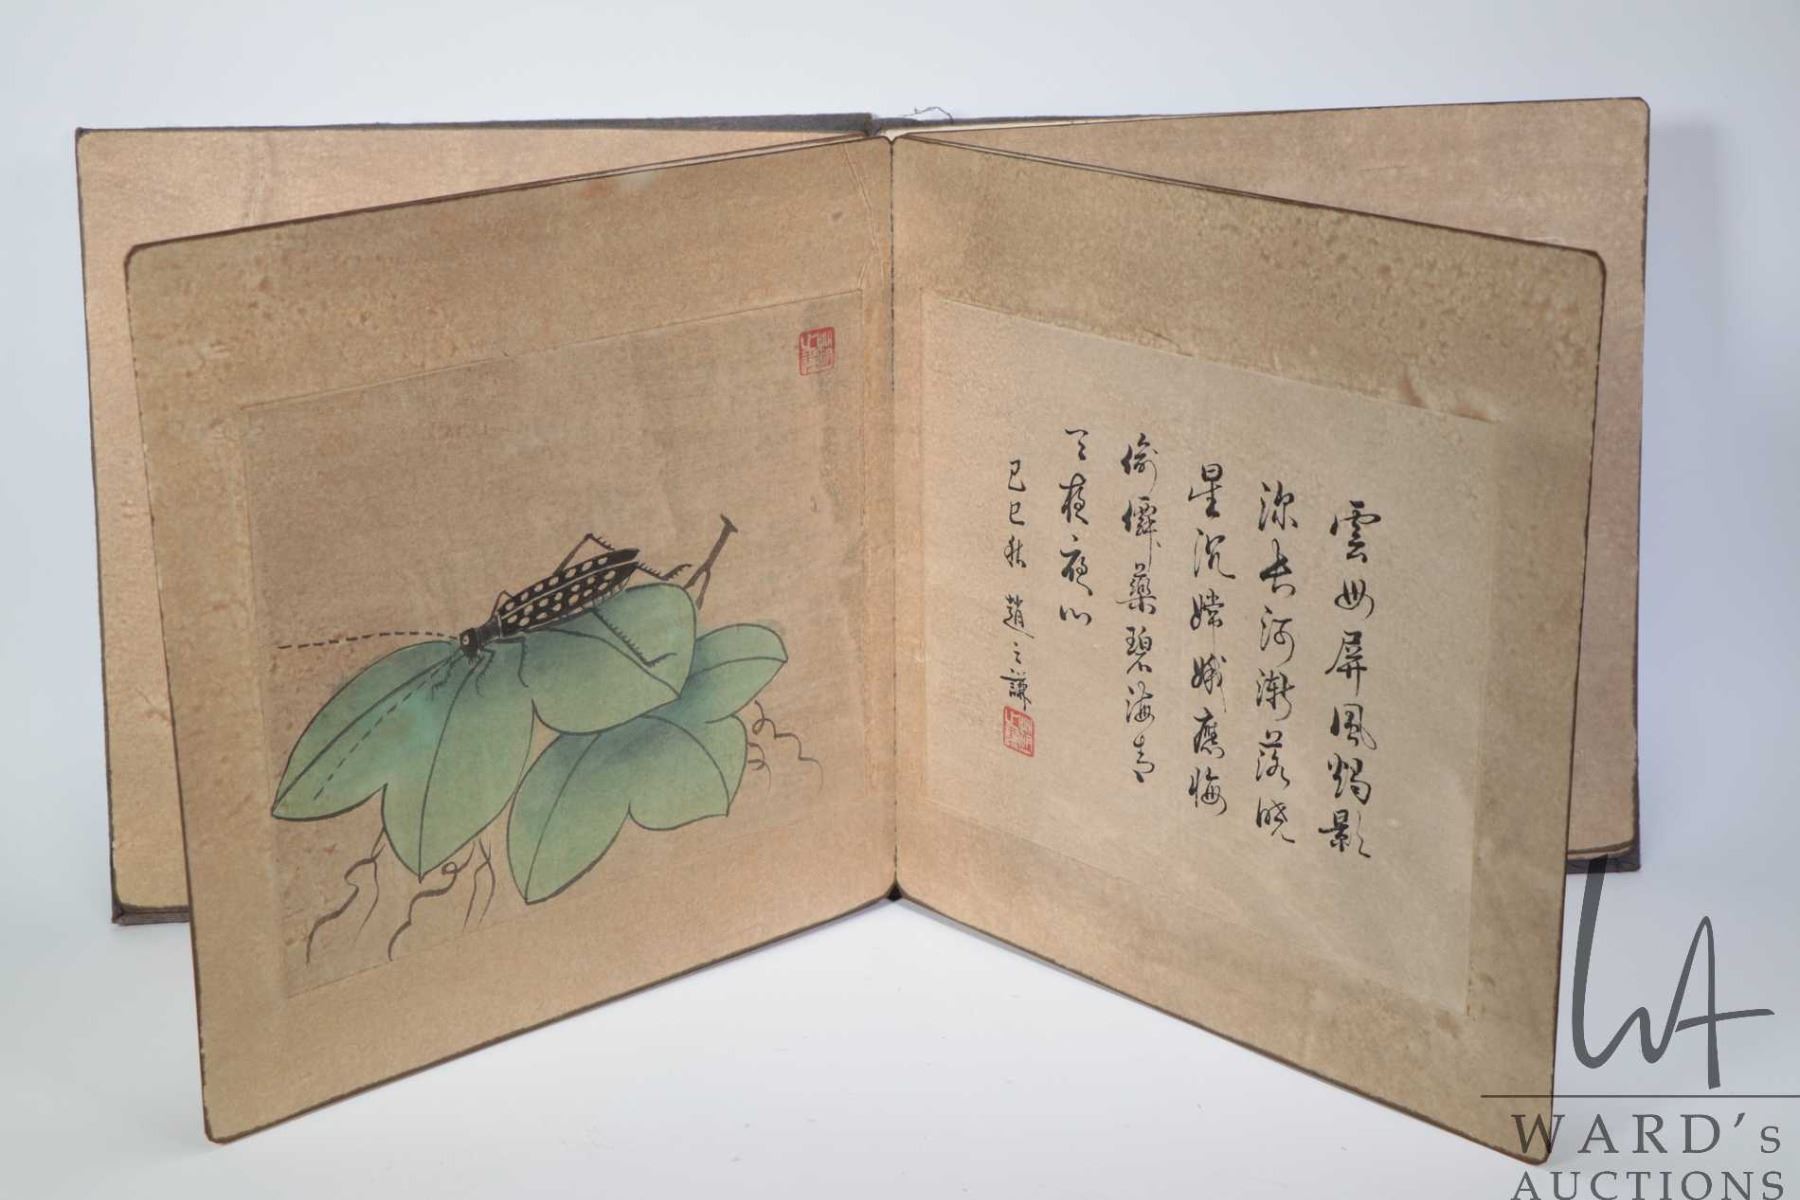 雲母屏風燭影
深長河漸落曉
星沉嫦娥應悔
偷僊藥碧海青
天夜夜心
己巳秋 趙之謙
WA
WARD's
AUCTIONS